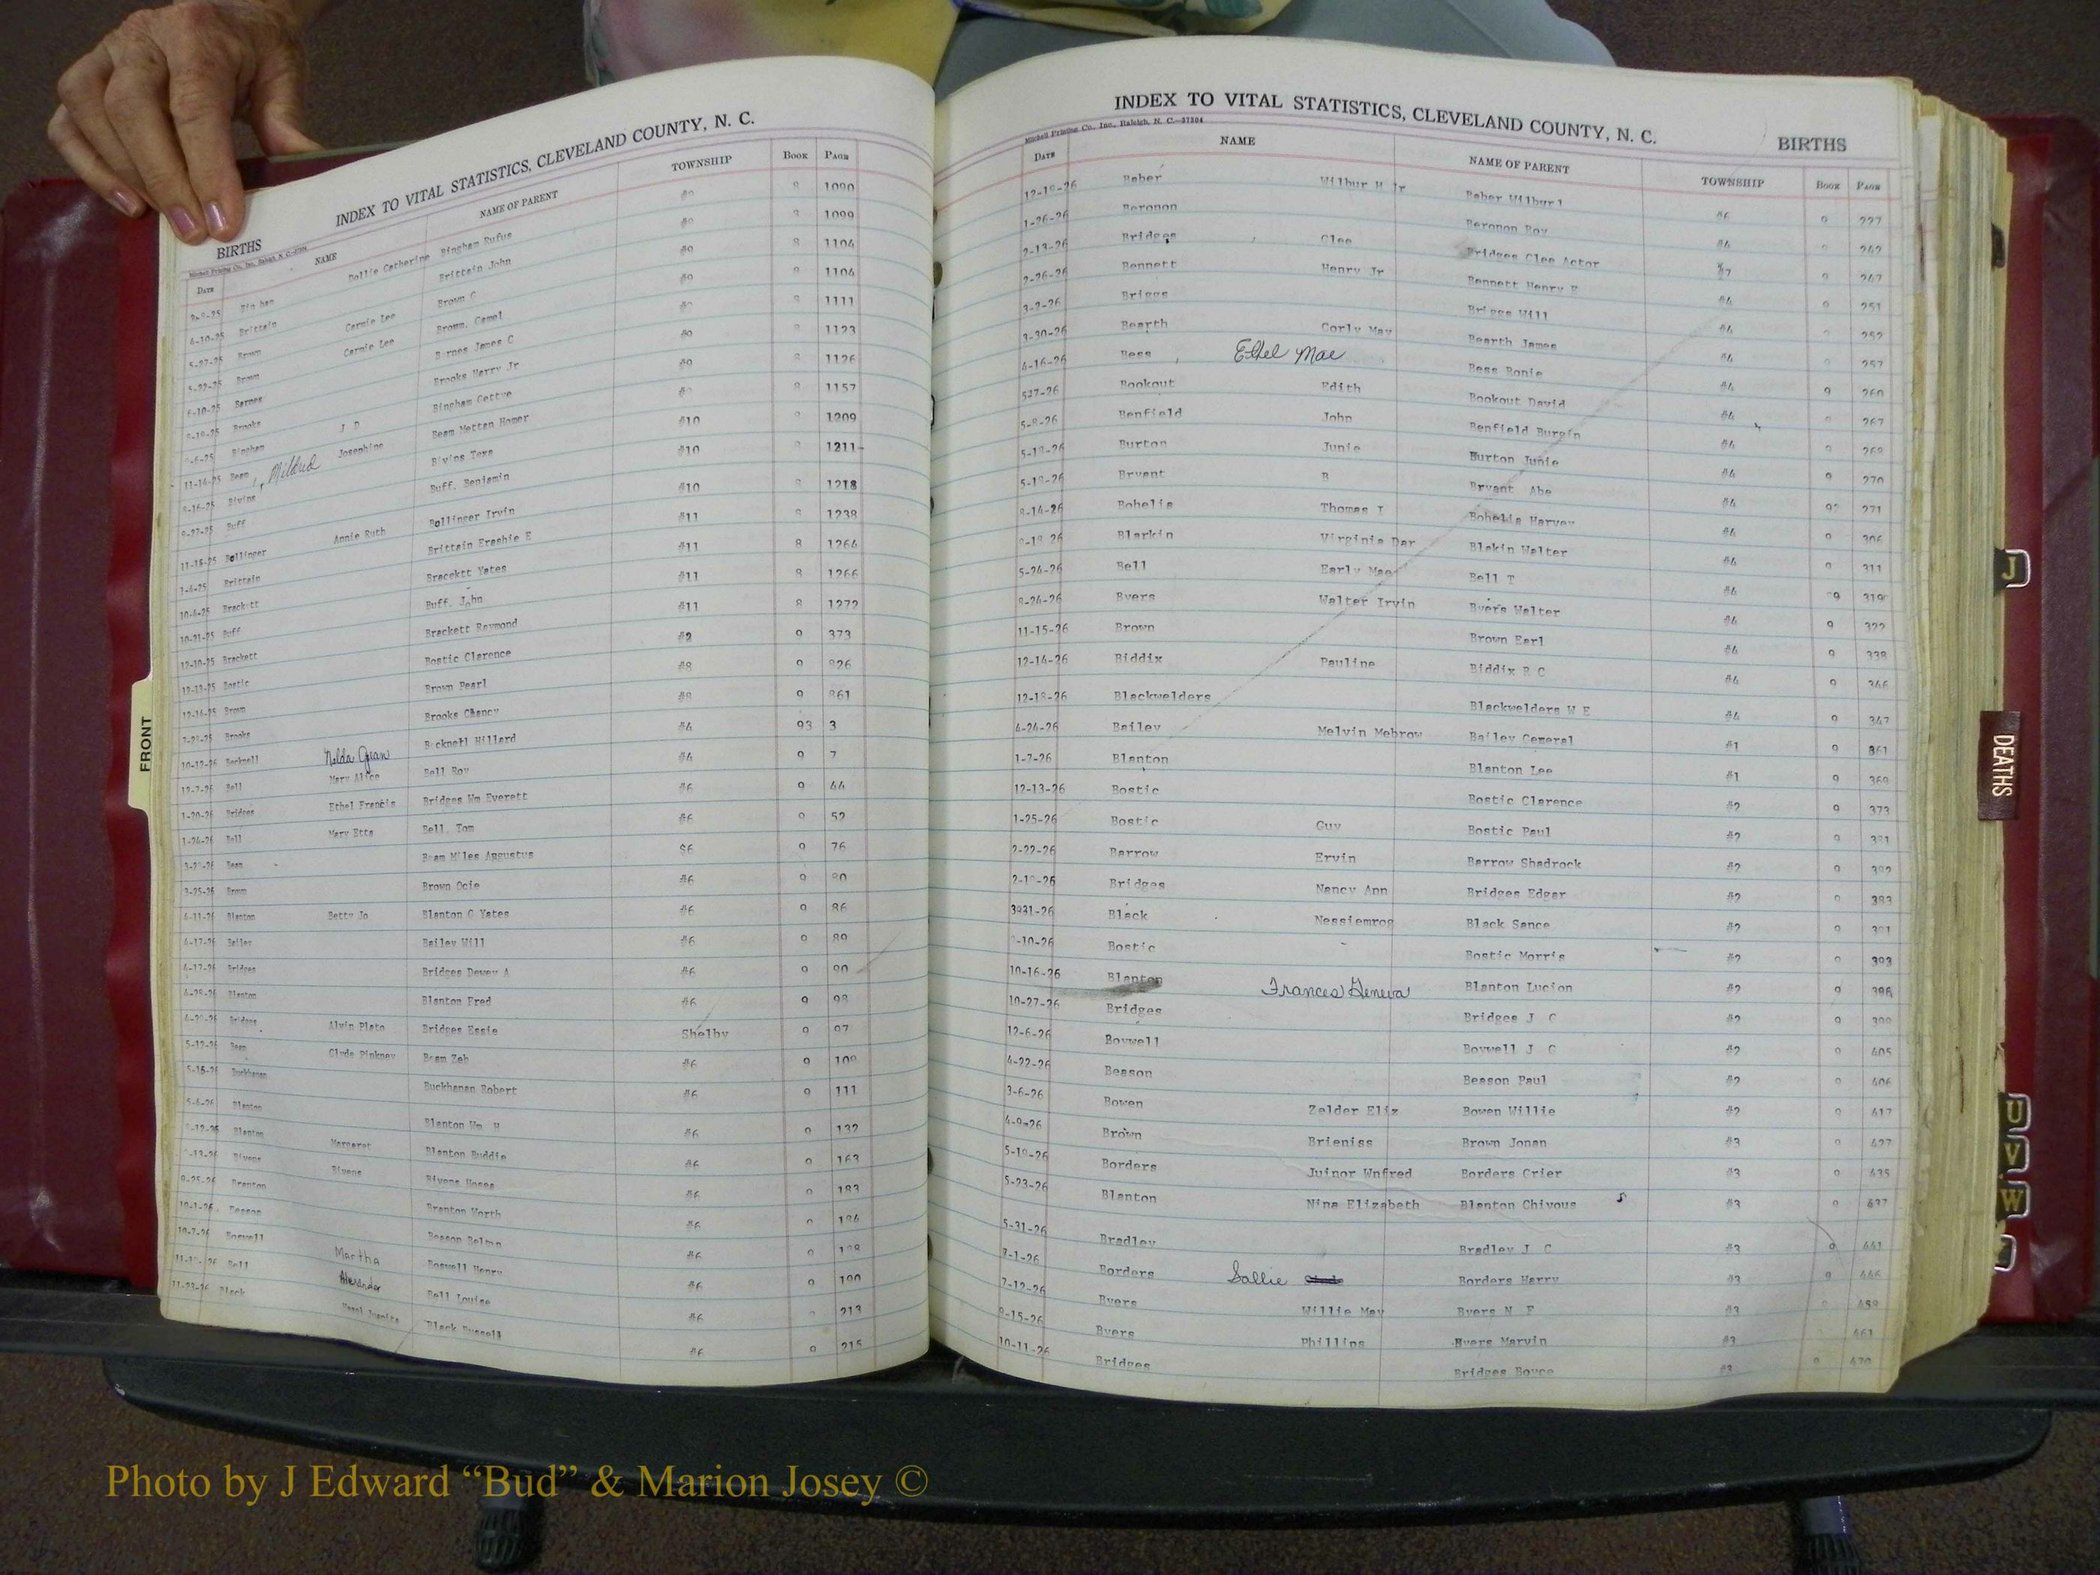 INDEX TO VITAL STATISTICS, CLEVELAND COUNTY, N. C.
BIRTHS
DATE NAME NAME OF PARENT TOWNSHIP BOOK PAGE
Dollie Catherine Bingham Rufus 1090
4-10-25 Brittain Brittain John 1099
5-27-25 Brown Carmie Lee Brown C 1104
Brown Carmie Lee 1104
6-10-25 Barnes James C 1111
Brooks Brooks Harry Jr 1123
Bingham J D 1126
11-14-25 Beam, Mildred Josephine Beam Metten Homer 1157
Bivins Bivins Texe #10 1209
Buff Buff, Benjamin #10 1211
11-18-25 Bollinger Annie Ruth Bollinger Irvin #10 1218
Brittain Brittain Erashie E #11 8 1238
10-4-25 Brackett Bracektt Yates #11 8 1264
10-31-25 Buff Buff, John #11 8 1266
12-10-25 Brackett Brackett Raymond #11 8 1272
12-13-25 Bostic Bostic Clarence #2 9 373
12-16-25 Brown Brown Pearl #8 9 826
Brooks Brooks Chancy #8 9 861
10-12-26 Becknell Nelda Jean Becknell Hillard #4 93 3
12-7-26 Bell Mary Alice Bell Roy #4 9 7
1-20-26 Bridges Ethel Francis Bridges Wm Everett #6 9 44
1-24-26 Bell Mary Etta Bell, Tom #6 9 52
Beam Beam Miles Augustus $6 9 76
3-25-26 Brown Brown Ocie #6 9 80
4-11-26 Blanton Betty Jo Blanton G Yates #6 9 86
4-17-26 Bailey Bailey Will #6 9 89
4-17-26 Bridges Bridges Dewey A #6 9 90
Blanton Blanton Fred #6 9 98
Bridges Alvin Plato Bridges Essie Shelby 9 97
5-12-26 Beam Clyde Pinkney Beam Zeb #6 9 109
5-15-26 Buckhanan Buckhanan Robert #6 9 111
5-6-26 Blanton Blanton Wm H #6 9 132
Blanton Margaret Blanton Buddie #6 9 163
Bivens Bivens Bivens Moses #6 9 183
Branton Branton Worth #6 184
10-1-26 Beason #6
10-7-26 Boswell Martha Boswell Henry #6 9 190
Bell Alexander Bell Louise #6 213
11-23-26 Black Hazel Juanita Black Russell #6 9 215
INDEX TO VITAL STATISTICS, CLEVELAND COUNTY, N. C.
Mitchell Printing Co., Inc., Raleigh, N. C.—37304
BIRTHS
DATE NAME NAME OF PARENT TOWNSHIP BOOK PAGE
12-19-26 Baber Wilbur H Jr Baber Wilburl #6 9 227
1-26-26 Beronon Beronon Roy #4 9 242
2-13-26 Bridges Clee Bridges Clee Actor #7 9 247
2-26-26 Bennett Henry Jr Bennett Henry E #4 9 251
3-2-26 Briggs Briggs Will #4 252
3-30-26 Bearth Corly May Bearth James #4 257
4-16-26 Bess, Ethel Mae Bess Bonie #4 9 260
5-7-26 Bookout Edith Bookout David #4 267
5-8-26 Benfield John Benfield Burgin #4 9 268
5-18-26 Burton Junie Burton Junie #4 9 270
5-19-26 Bryant B Bryant Abe #4 271
8-14-26 Bohelia Thomas I Bohelia Harvey #4 9 306
Blarkin Virginia Dar Blakin Walter #4 9 311
5-24-26 Bell Early Mae Bell T #4 9 319
8-24-26 Byers Walter Irvin Byers Walter #4 9 322
11-15-26 Brown Brown Earl #4 9 338
12-14-26 Biddix Pauline Biddix R C #4 9 346
12-18-26 Blackwelders Blackwelders W E #4 9 347
4-24-26 Bailey Melvin Mebrow Bailey Gemeral #1 9 361
1-7-26 Blanton Blanton Lee #1 9 369
12-13-26 Bostic Bostic Clarence #2 9 373
1-25-26 Bostic Guy Bostic Paul #2 9 381
2-22-26 Barrow Ervin Barrow Shadrock #2 9 382
2-19-26 Bridges Nancy Ann Bridges Edgar #2 9 383
3931-26 Black Nessiemrog Black Sance #2 9 391
Bostic Bostic Morris #2 9 393
10-16-26 Blanton Frances Geneva Blanton Lucion #2 9 396
10-27-26 Bridges Bridges J C #2 9 399
12-6-26 Bovwell Bovwell J C #2 9 405
4-22-26 Beason Beason Paul #2 9 406
3-6-26 Bowen Zelder Eliz Bowen Willie #2 9 417
4-9-26 Brown Brieniss Brown Jonan #3 9 427
5-19-26 Borders Juinor Wnfred Borders Crier #3 9 435
5-23-26 Blanton Nina Elizabeth Blanton Chivous #3 9 437
5-31-26 Bradley Bradley J C #3 9 441
7-1-26 Borders Sallie Borders Harry #3 9 446
7-12-26 Byers Willie May Byers N F #3 458
9-15-26 Byers Phillips Byers Marvin #3 461
10-11-26 Bridges Bridges Boyce #3 9 470
FRONT
J
DEATHS
U
V
W
Photo by J Edward “Bud” & Marion Josey ©